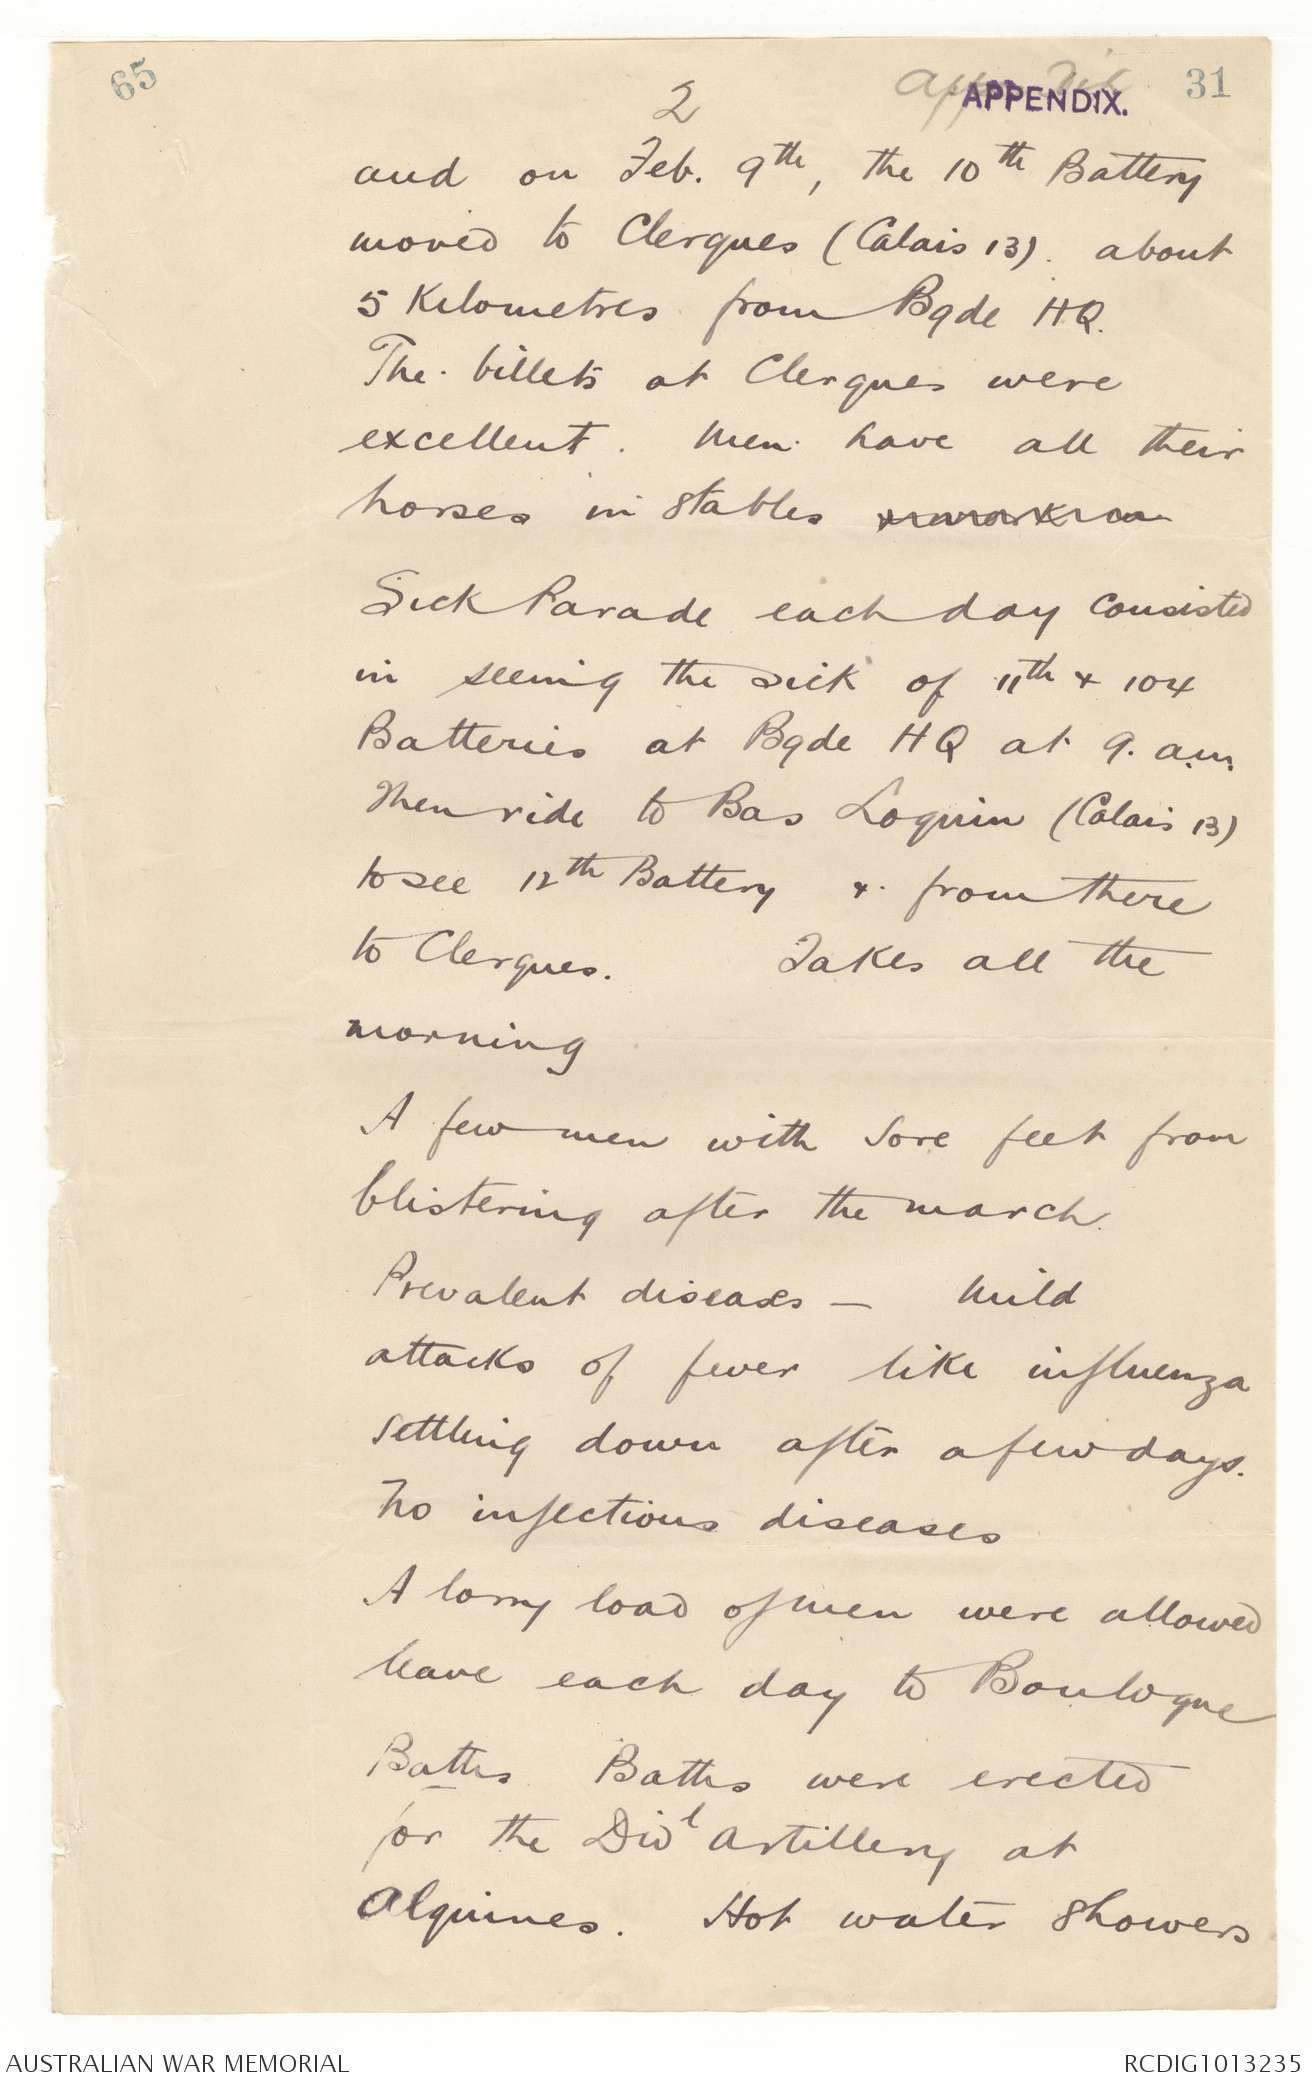 65
2
Appendix
APPENDIX.
31
and on Feb. 9th, the 10th Battery
moved to Clerques (Calais 13). about
5 Kilometres from Bgde HQ.
The billets at Clerques were
excellent. Men have all their
horses in stables
Sick Parade each day consisted
in seeing the sick of 11th & 104
Batteries at Bgde HQ at 9. a.m.
Then ride to Bas Loquin (Calais 13)
to see 12th Battery & from there
to Clerques. Takes all the
morning
A few men with sore feet from
blistering after the march.
Prevalent diseases — Mild
attacks of fever like influenza
settling down after a few days.
No infectious diseases
A lorry load of men were allowed
leave each day to Boulogne
Baths Baths were erected
for the Divl Artillery at
Alquines. Hot water showers
AUSTRALIAN WAR MEMORIAL
RCDIG1013235